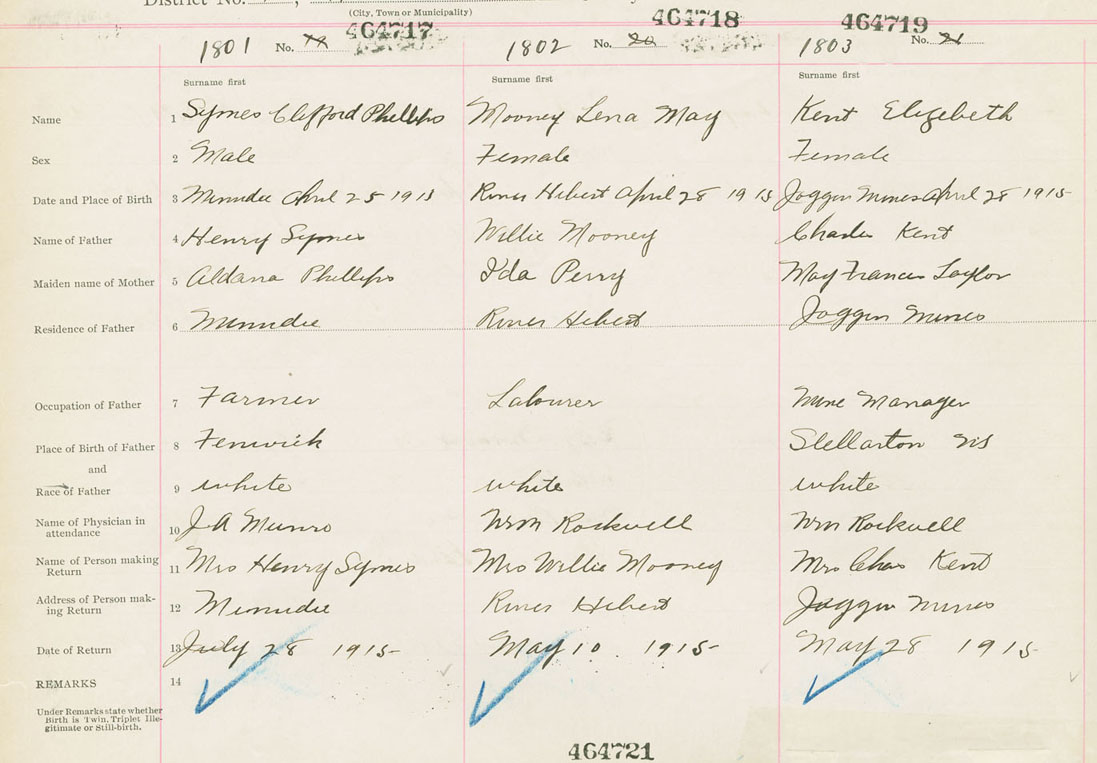 District No.
(City, Town or Municipality)
464717 464718 464719
1801 No. 19 1802 No. 20 1803 No. 21
Surname first Surname first Surname first
Name 1 Symes Clifford Phellips Mooney Lena May Kent Elizebeth
Sex 2 Male Female Female
Date and Place of Birth 3 Minudie April 25 1915 River Hebert April 28 1915 Joggin Mines April 28 1915
Name of Father 4 Henry Symes Willie Mooney Charles Kent
Maiden name of Mother 5 Aldana Phellips Ida Perry May Frances Taylor
Residence of Father 6 Minudie River Hebert Joggin Mines
Occupation of Father 7 Farmer Labourer Mine Manager
Place of Birth of Father 8 Fenwick Stellarton NS
and
Race of Father 9 white white white
Name of Physician in
attendance 10 J A Munro Wm Rockwell Wm Rockwell
Name of Person making
Return 11 Mrs Henry Symes Mrs Willie Mooney Mrs Chas Kent
Address of Person mak-
ing Return 12 Minudie River Hebert Joggin Mines
Date of Return 13 July 28 1915 May 10 1915 May 28 1915
REMARKS 14
Under Remarks state whether
Birth is Twin, Triplet Ille-
gitimate or Still-birth.
464721